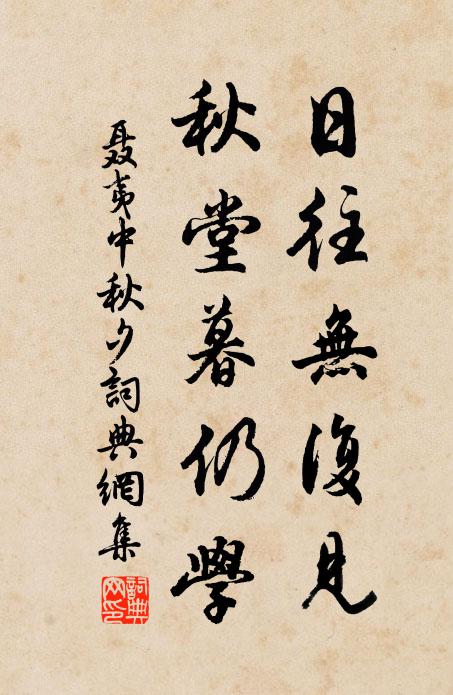 日往無復見
秋堂暮仍學
聂夷中秋夕詞典網集
詞典网印